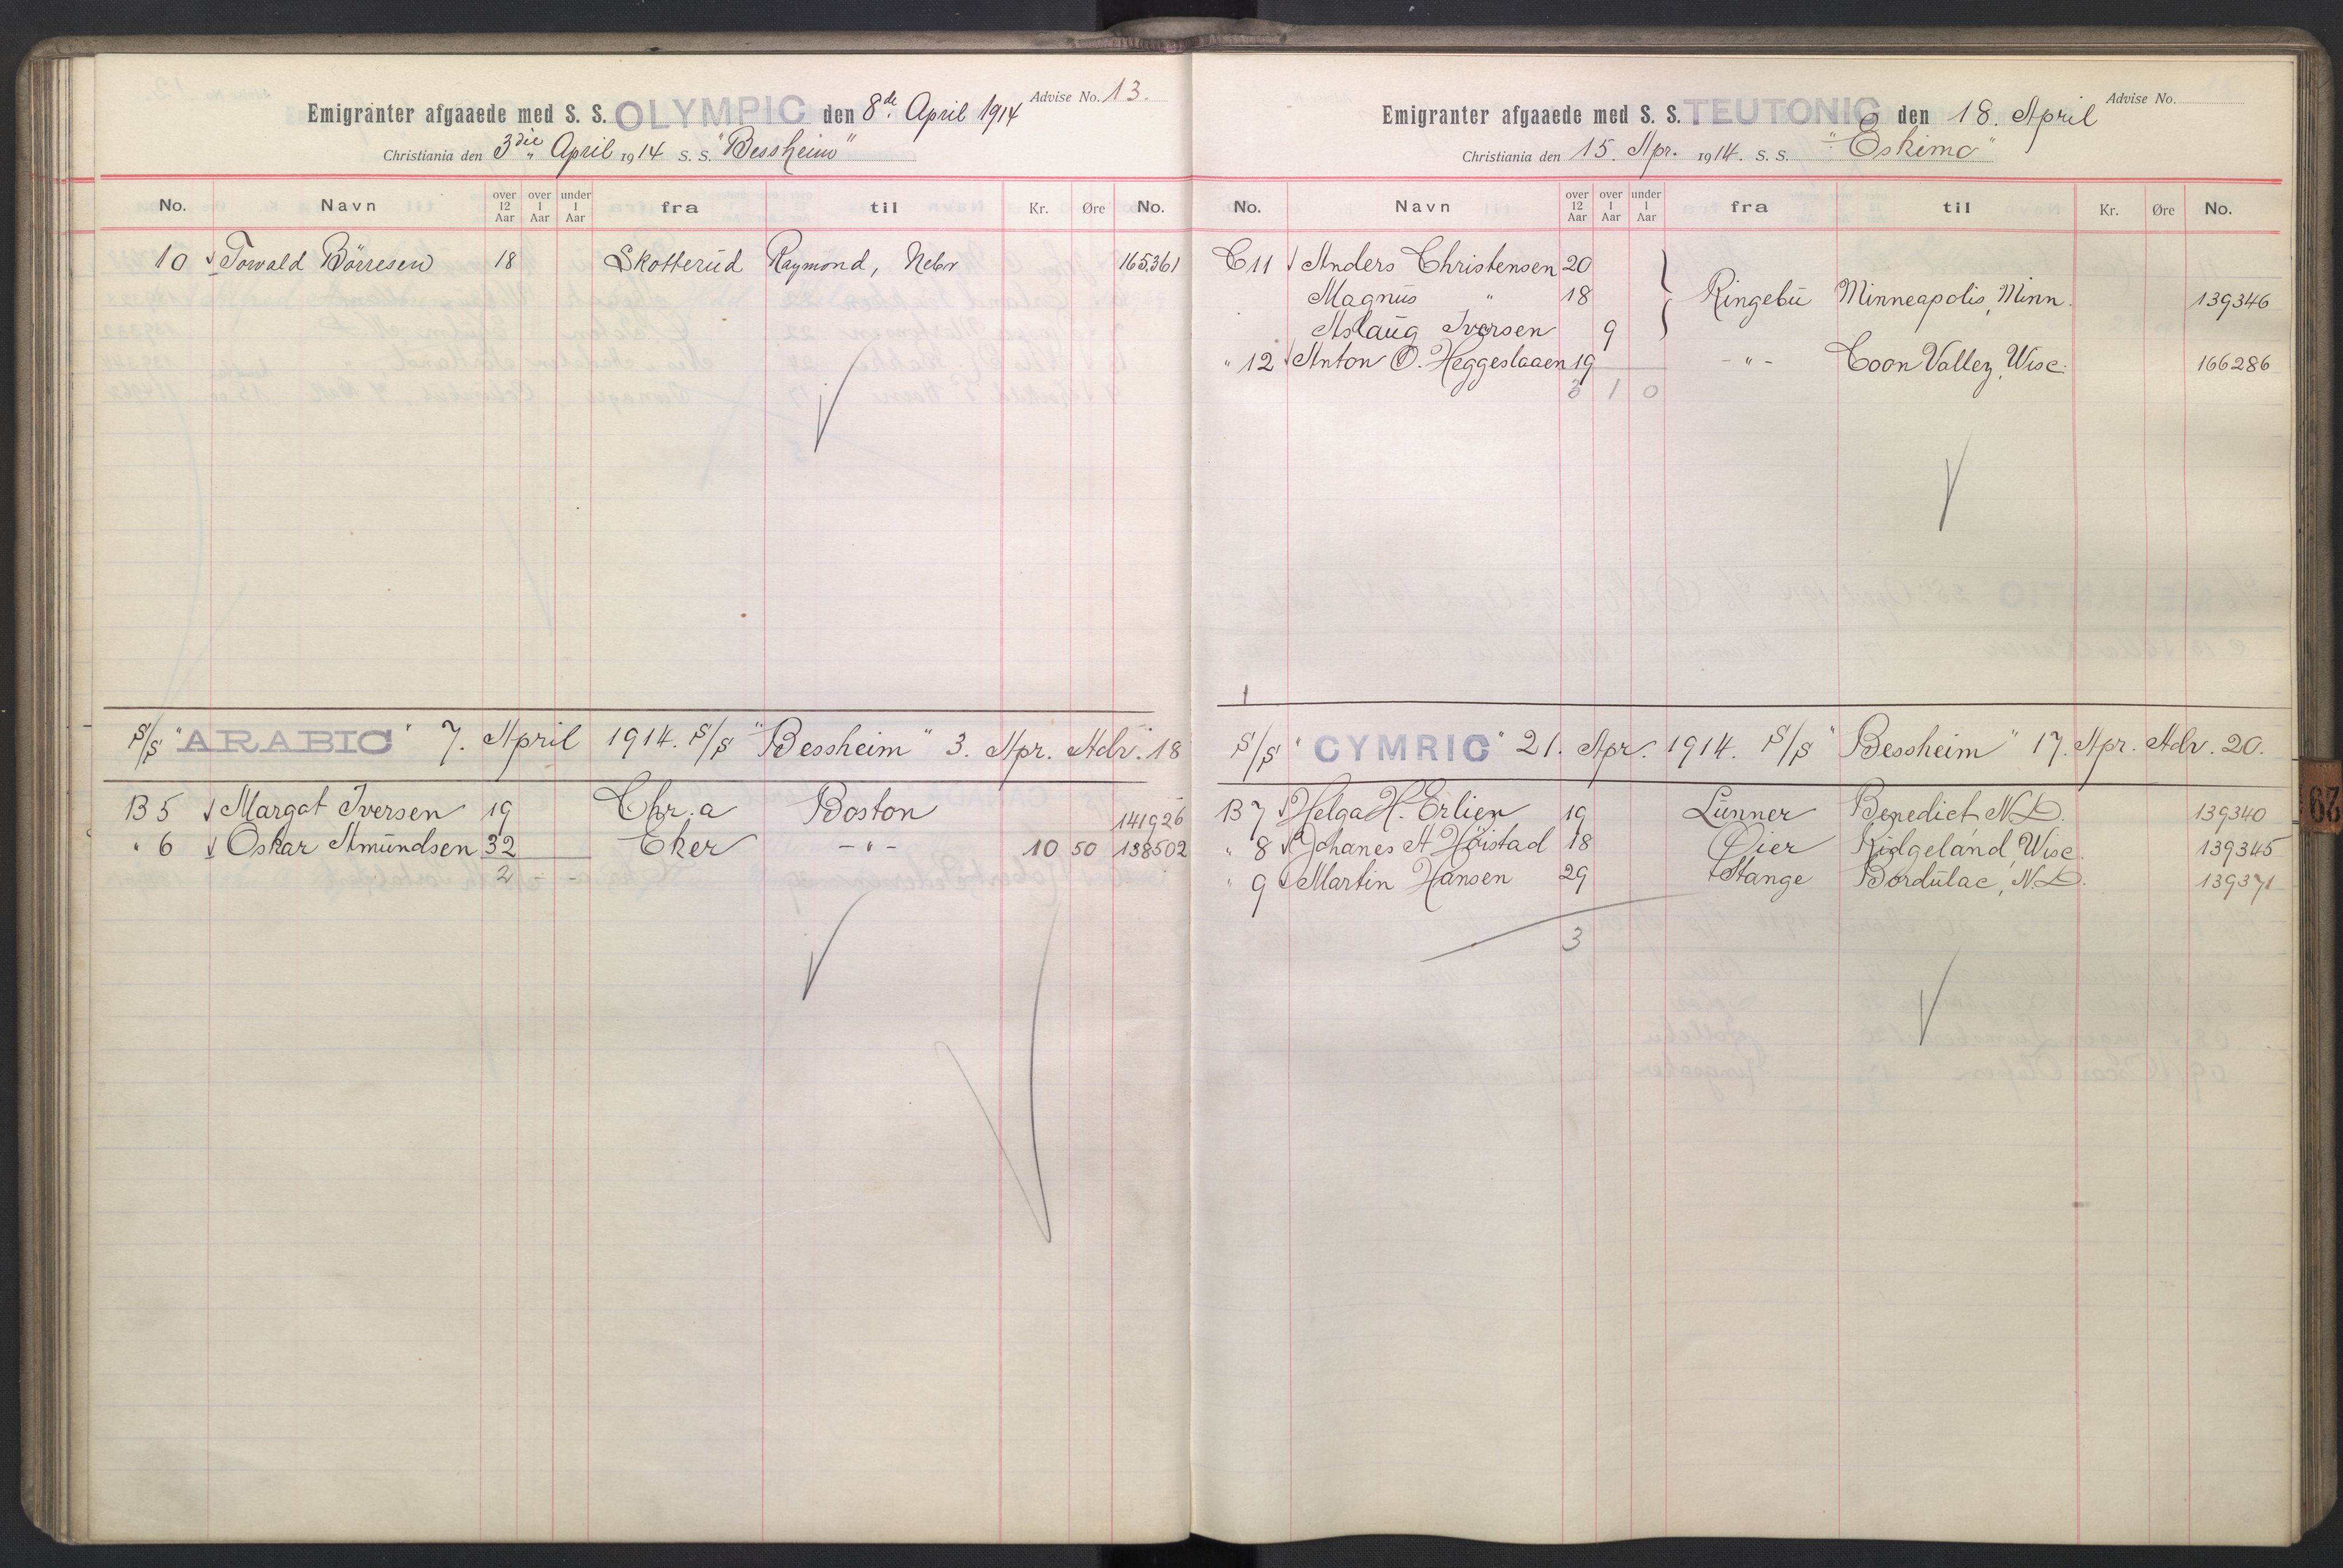 Advise No. 13.
Emigranter afgaaede med S. S. OLYMPIC den 8de April 1914
Christiania den 3die April 1914 S. S. "Bessheim"
No. Navn over 12 Aar over 1 Aar under 1 Aar fra til Kr. Øre No.
10 Torvald Börresen 18 Skotterud Raymond, Nebr 165361
S/S "ARABIC" 7. April 1914. S/S "Bessheim" 3. Apr. Adv. 18
B 5 Margat Iversen 19 Chr.a Boston 141926
" 6 Oskar Amundsen 32 Eker -"- 10 50 138502
2 - -
Advise No.
Emigranter afgaaede med S. S. TEUTONIC den 18. April
Christiania den 15. Apr. 1914. S. S. "Eskimo"
No. Navn over 12 Aar over 1 Aar under 1 Aar fra til Kr. Øre No.
C 11 Anders Christensen 20
Magnus " 18 Ringebu Minneapolis, Minn. 139346
Aslaug Iversen 9
" 12 Anton O. Heggeslaaen 19 -"- Coon Valley, Wisc. 166286
3 1 0
S/S "CYMRIC" 21. Apr. 1914. S/S "Bessheim" 17. Apr. Adv. 20.
B 7 Helga H. Erlien 19 Lunner Benedict, N.D. 139340
" 8 Johanes A Höistad 18 Öier Ridgeland, Wisc. 139345
" 9 Martin Hansen 29 Stange Bordulac, N.D. 139371
3
29